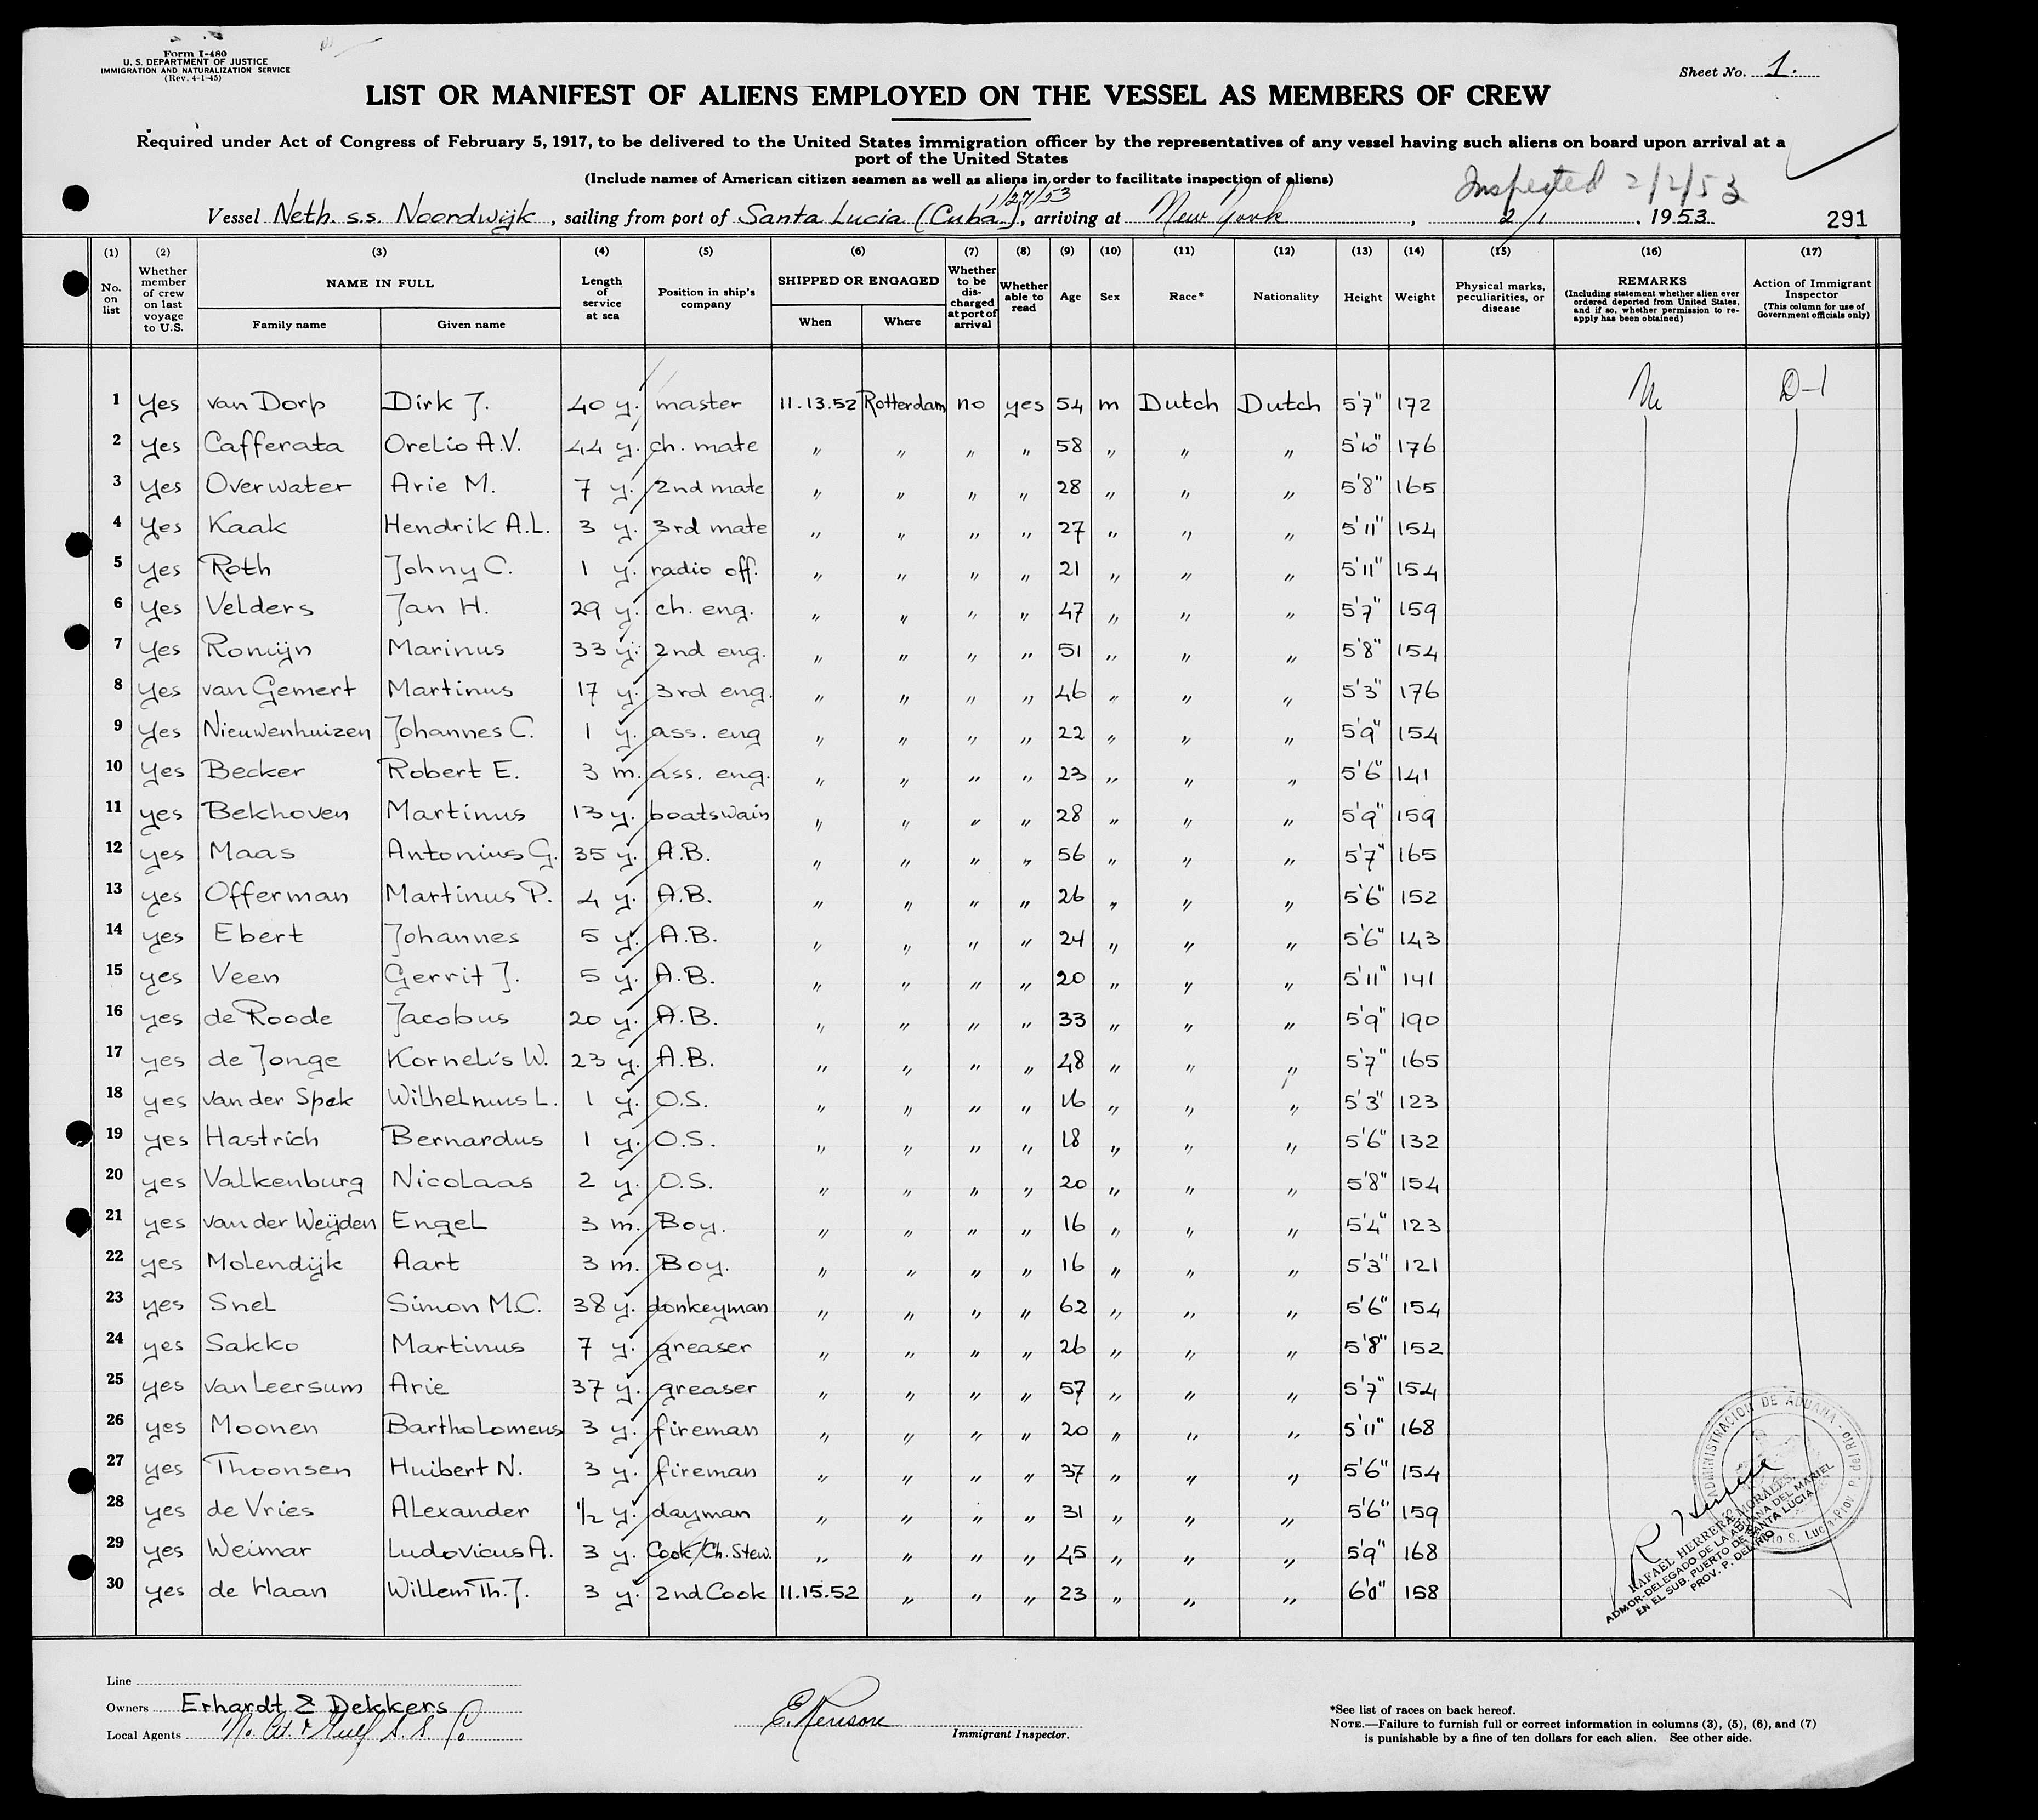 Form I-480
U. S. DEPARTMENT OF JUSTICE
IMMIGRATION AND NATURALIZATION SERVICE
(Rev. 4-1-45)
Sheet No. 1.
LIST OR MANIFEST OF ALIENS EMPLOYED ON THE VESSEL AS MEMBERS OF CREW
Required under Act of Congress of February 5, 1917, to be delivered to the United States immigration officer by the representatives of any vessel having such aliens on board upon arrival at a
port of the United States
(Include names of American citizen seamen as well as aliens in order to facilitate inspection of aliens)
Inspected 2/2/53
1/27/53
Vessel Neth. s.s. Noordwijk, sailing from port of Santa Lucia (Cuba), arriving at New York, 2/1, 1953 291
(1) (2) (3) (4) (5) (6) (7) (8) (9) (10) (11) (12) (13) (14) (15) (16) (17)
No. on list Whether member of crew on last voyage to U.S. NAME IN FULL Family name Given name Length of service at sea Position in ship's company SHIPPED OR ENGAGED When Where Whether to be discharged at port of arrival Whether able to read Age Sex Race* Nationality Height Weight Physical marks, peculiarities, or disease REMARKS (Including statement whether alien ever ordered deported from United States, and if so, whether permission to re-apply has been obtained) Action of Immigrant Inspector (This column for use of Government officials only)
1 yes van Dorp Dirk J. 40 y. master 11.13.52 Rotterdam no yes 54 m Dutch Dutch 5'7" 172 D-1
2 yes Cafferata Orelio A.V. 44 y. ch. mate " " " " 58 " " " 5'10" 176
3 yes Overwater Arie M. 7 y. 2nd mate " " " " 28 " " " 5'8" 165
4 yes Kaak Hendrik A.L. 3 y. 3rd mate " " " " 27 " " " 5'11" 154
5 yes Roth Johny C. 1 y. radio off. " " " " 21 " " " 5'11" 154
6 yes Velders Jan H. 29 y. ch. eng. " " " " 47 " " " 5'7" 159
7 yes Romijn Marinus 33 y. 2nd eng. " " " " 51 " " " 5'8" 154
8 yes van Gemert Martinus 17 y. 3rd eng. " " " " 46 " " " 5'3" 176
9 yes Nieuwenhuizen Johannes C. 1 y. ass. eng " " " " 22 " " " 5'9" 154
10 yes Becker Robert E. 3 m. ass. eng. " " " " 23 " " " 5'6" 141
11 yes Bekhoven Martinus 13 y. boatswain " " " " 28 " " " 5'9" 159
12 yes Maas Antonius G. 35 y. A.B. " " " " 56 " " " 5'7" 165
13 yes Offerman Martinus P. 4 y. A.B. " " " " 26 " " " 5'6" 152
14 yes Ebert Johannes 5 y. A.B. " " " " 24 " " " 5'6" 143
15 yes Veen Gerrit J. 5 y. A.B. " " " " 20 " " " 5'11" 141
16 yes de Roode Jacobus 20 y. A.B. " " " " 33 " " " 5'9" 190
17 yes de Jonge Kornelis W. 23 y. A.B. " " " " 48 " " " 5'7" 165
18 yes van der Spek Wilhelmus L. 1 y. O.S. " " " " 16 " " " 5'3" 123
19 yes Hastrich Bernardus 1 y. O.S. " " " " 18 " " " 5'6" 132
20 yes Valkenburg Nicolaas 2 y. O.S. " " " " 20 " " " 5'8" 154
21 yes van der Weijden Engel 3 m. Boy. " " " " 16 " " " 5'4" 123
22 yes Molendijk Aart 3 m. Boy. " " " " 16 " " " 5'3" 121
23 yes Snel Simon M.C. 38 y. donkeyman " " " " 62 " " " 5'6" 154
24 yes Sakko Martinus 7 y. greaser " " " " 26 " " " 5'8" 152
25 yes van Leersum Arie 37 y. greaser " " " " 57 " " " 5'7" 154
26 yes Moonen Bartholomeus 3 y. fireman " " " " 20 " " " 5'11" 168
27 yes Thoonsen Huibert N. 3 y. fireman " " " " 37 " " " 5'6" 154
28 yes de Vries Alexander 1/2 y. dayman " " " " 31 " " " 5'6" 159
29 yes Weimar Ludovicus A. 3 y. Cook/Ch. Stew. " " " " 45 " " " 5'9" 168
30 yes de Haan Willem Th. J. 3 y. 2nd Cook 11.15.52 " " " 23 " " " 6'0" 158
ADMINISTRACION DE ADUANA
RAFAEL HERRERA MORALES,
ADMOR-DELEGADO DE LA ADUANA DEL MARIEL
EN EL SUB. PUERTO DE SANTA LUCIA
PROV. P. DEL RIO
Line
Owners Erhardt & Dekkers
Local Agents No. At. & Gulf S. S. Co
Immigrant Inspector.
*See list of races on back hereof.
NOTE.—Failure to furnish full or correct information in columns (3), (5), (6), and (7)
is punishable by a fine of ten dollars for each alien. See other side.